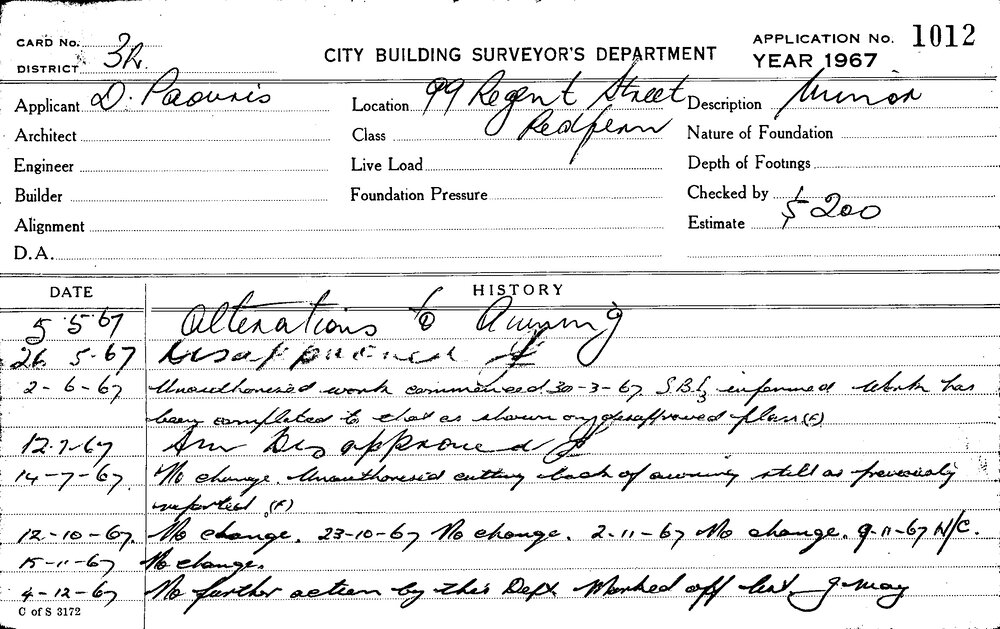 CARD No. 3R.
DISTRICT
CITY BUILDING SURVEYOR'S DEPARTMENT
APPLICATION No. 1012
YEAR 1967
Applicant D. Paouris Location 99 Regent Street Description Minor
Architect Class Redfern Nature of Foundation
Engineer Live Load Depth of Footings
Builder Foundation Pressure Checked by
Alignment Estimate $200
D.A.
DATE HISTORY
5 5 67 Alterations to Awning
26. 5-67 Disapproved
2-6-67 Unauthorised work commenced 30-3-67. informed Work has
been completed to that as shown on disapproved plan (F)
12.7-67 Disapproved
14-7-67. No change. Unauthorised cutting back of awning still as previously
reported (F)
12-10-67. No change. 23-10-67 No change. 2-11-67 No change. 9-11-67 N/C.
15-11-67 No change.
4-12-67 No further action by this Dept. Marked off list
C of S 3172